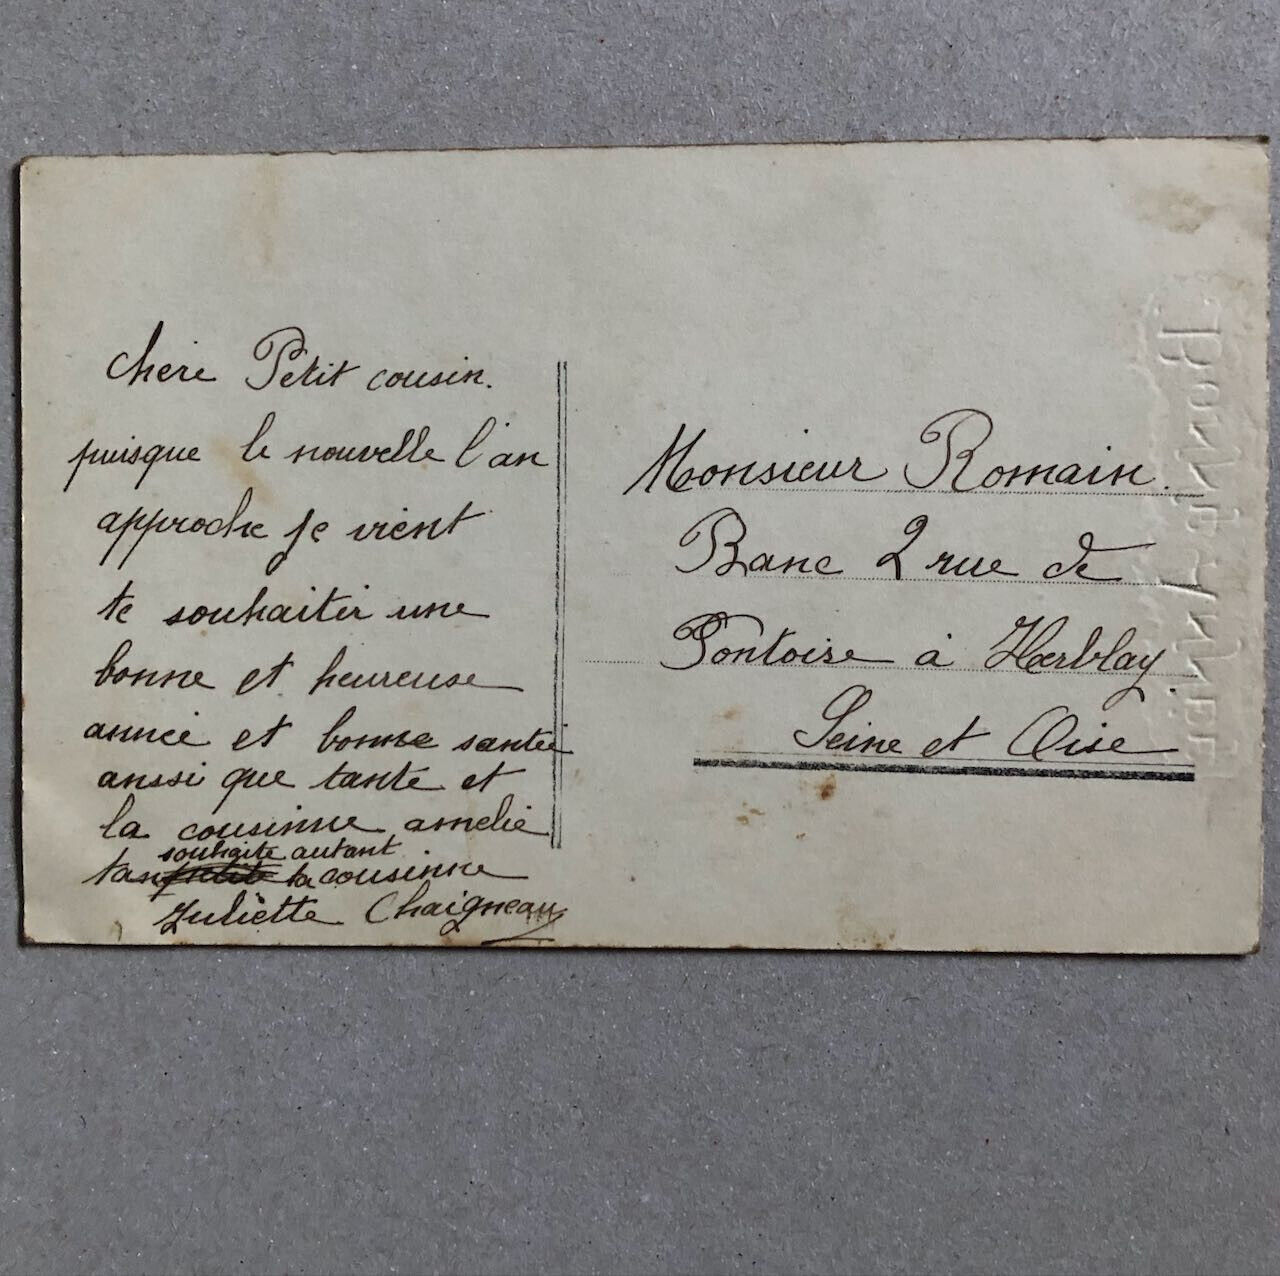 chère Petit cousin.
puisque le nouvelle l'an
approche je vient
te souhaiter une
bonne et heureuse
année et bonne santée
aussi que tante et
la cousinne amelie
souhaite autant
ta cousinne
Juliette Chaigneau
Monsieur Romain.
Banc 2 rue de
Pontoise à Herblay
Seine et Oise
BONNE ANNEE